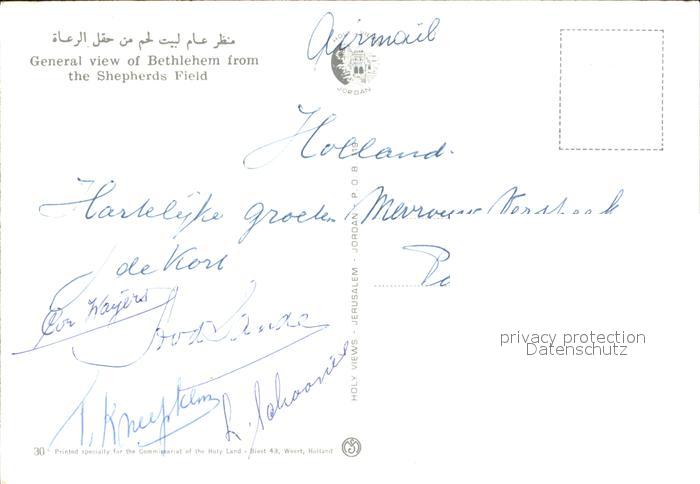 منظر عام لبيت لحم من حقل الرعاة
General view of Bethlehem from
the Shepherds Field
Airmail
JORDAN
Holland.
Hartelijke groeten
Mevrouw
de Kort
Cor Waijers
T. Kneepkens
HOLY VIEWS - JERUSALEM - JORDAN P.O.B. 19
privacy protection
Datenschutz
30 Printed specially for the Commissariat of the Holy Land - Biest 43, Weert, Holland